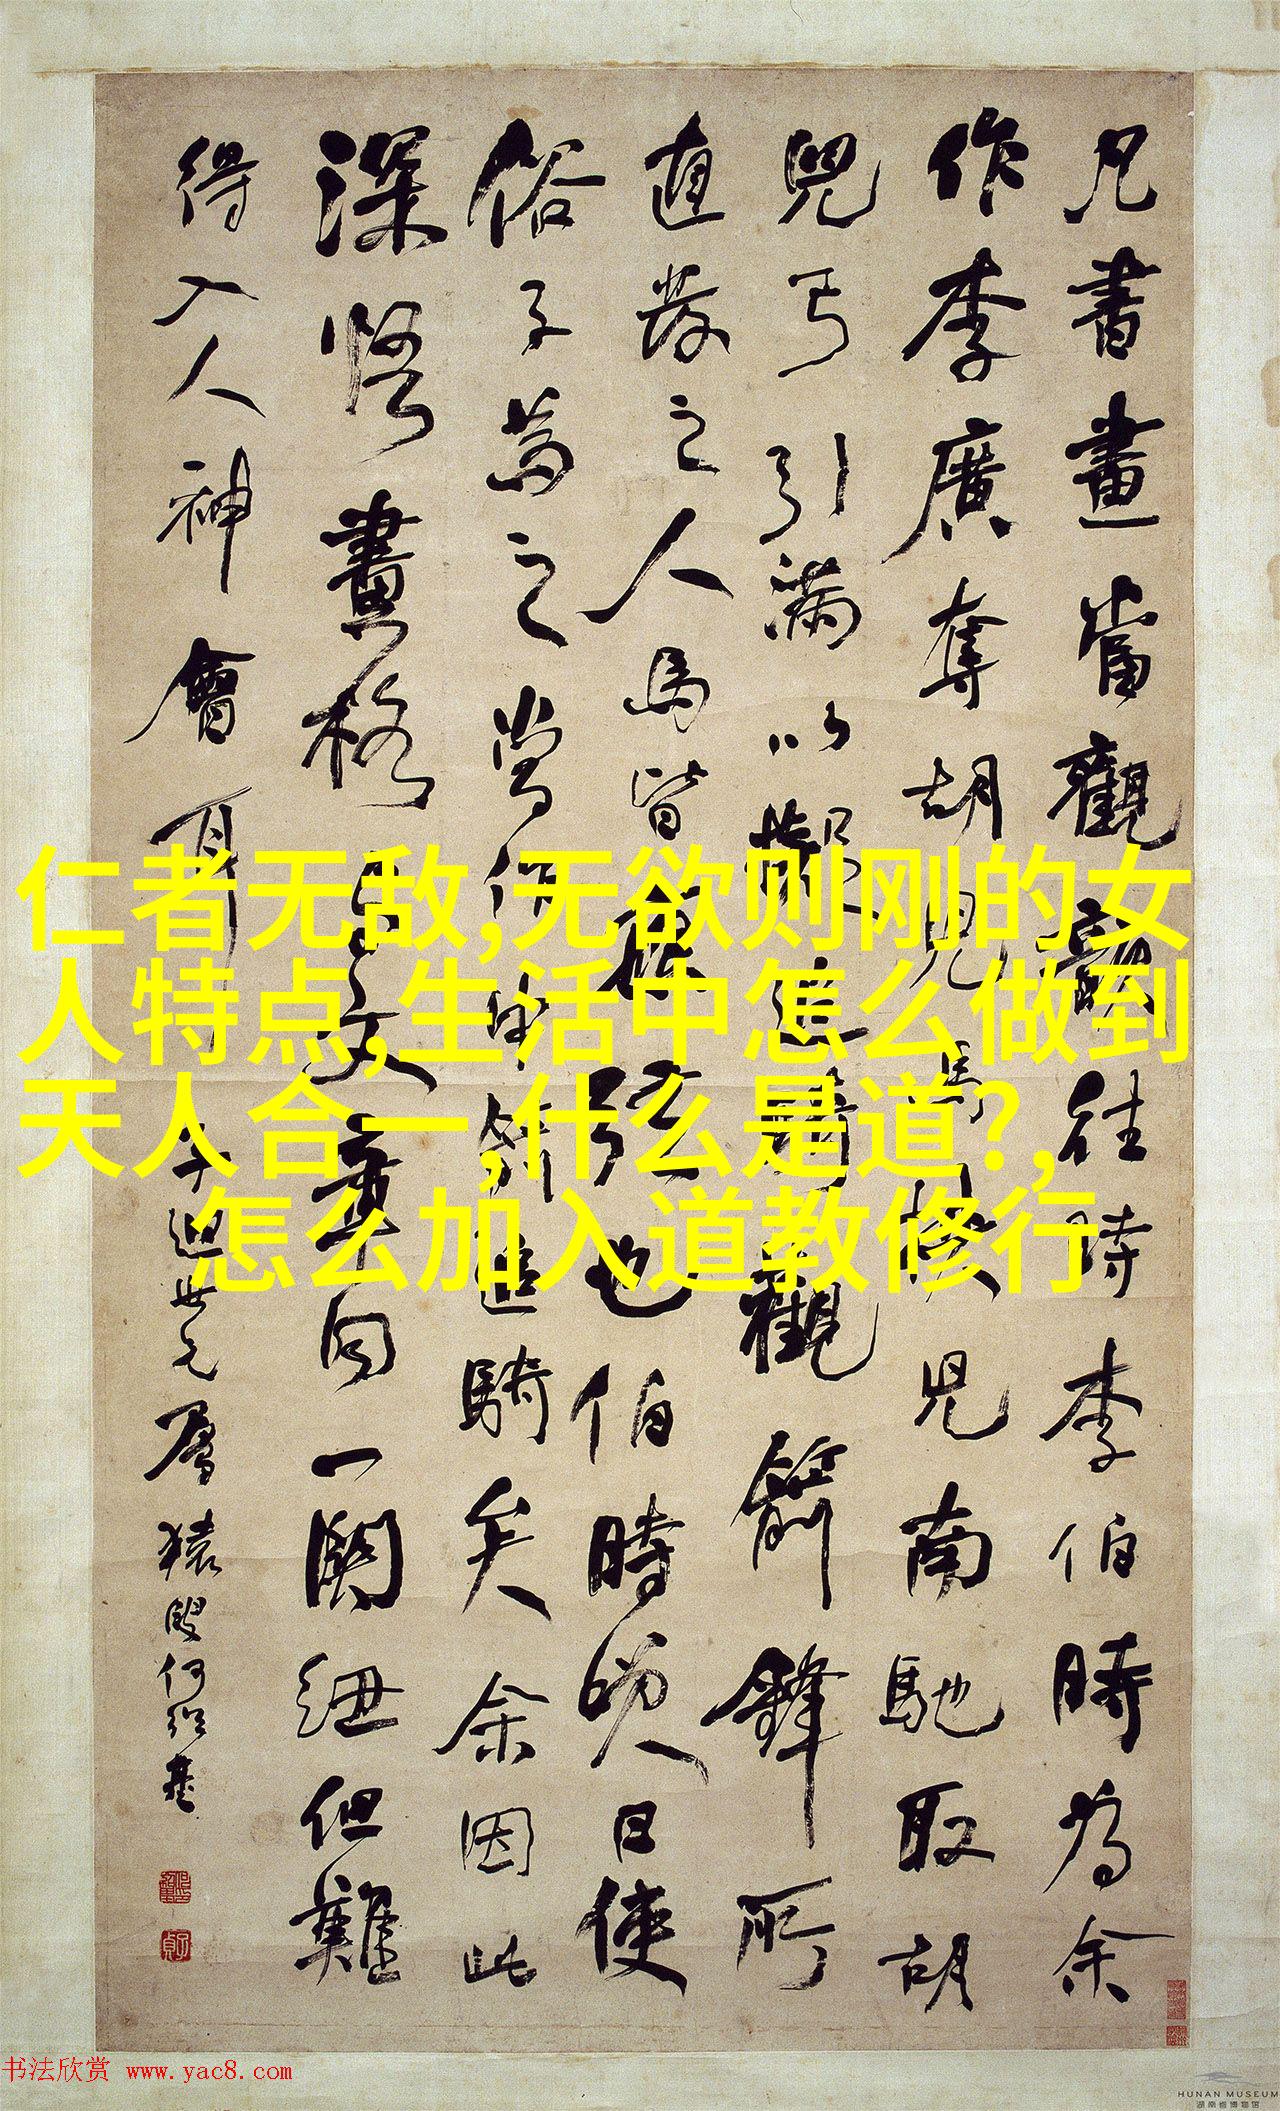 凡書畫當觀韻往時李伯時為余
作李廣奪胡兒馬挾兒南馳取胡
兒弓引滿以擬追騎觀箭鋒所
直發之人馬皆應弦也伯時笑曰使
俗子為之當作中箭追騎矣余因此
深悟畫格與文章同一關紐但難
得入人神會耳
子迴世兄屬 猿叟何紹基
仁者无敌,无欲则刚的女
人特点,生活中怎么做到
天人合一,什么是道?,
怎么加入道教修行
书法欣赏 www.yac8.com
HUNAN MUSEUM
湖南省博物馆